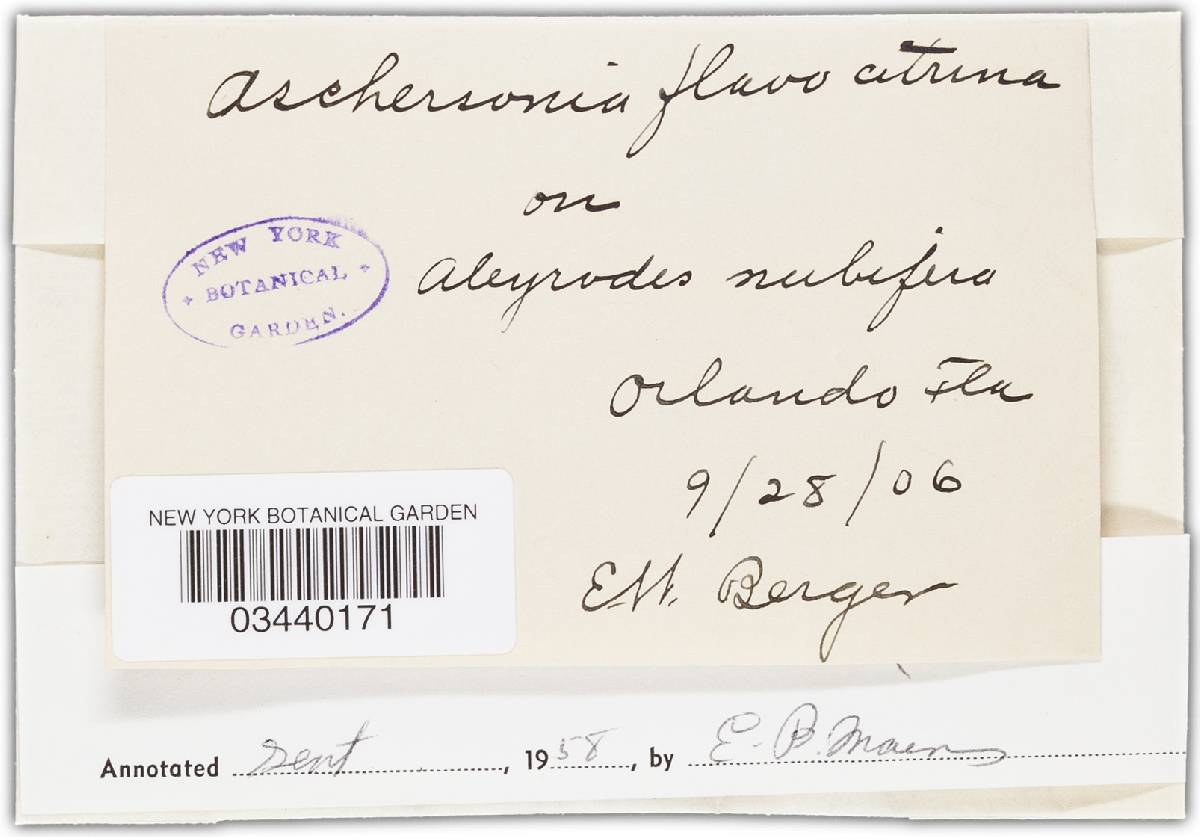 Aschersonia flavo citrina
on
Aleyrodes nubifera
Orlando Fla
9/28/06
E.W. Berger
NEW YORK
BOTANICAL
GARDEN.
NEW YORK BOTANICAL GARDEN
03440171
Annotated Sent, 1958, by E. B. Mains